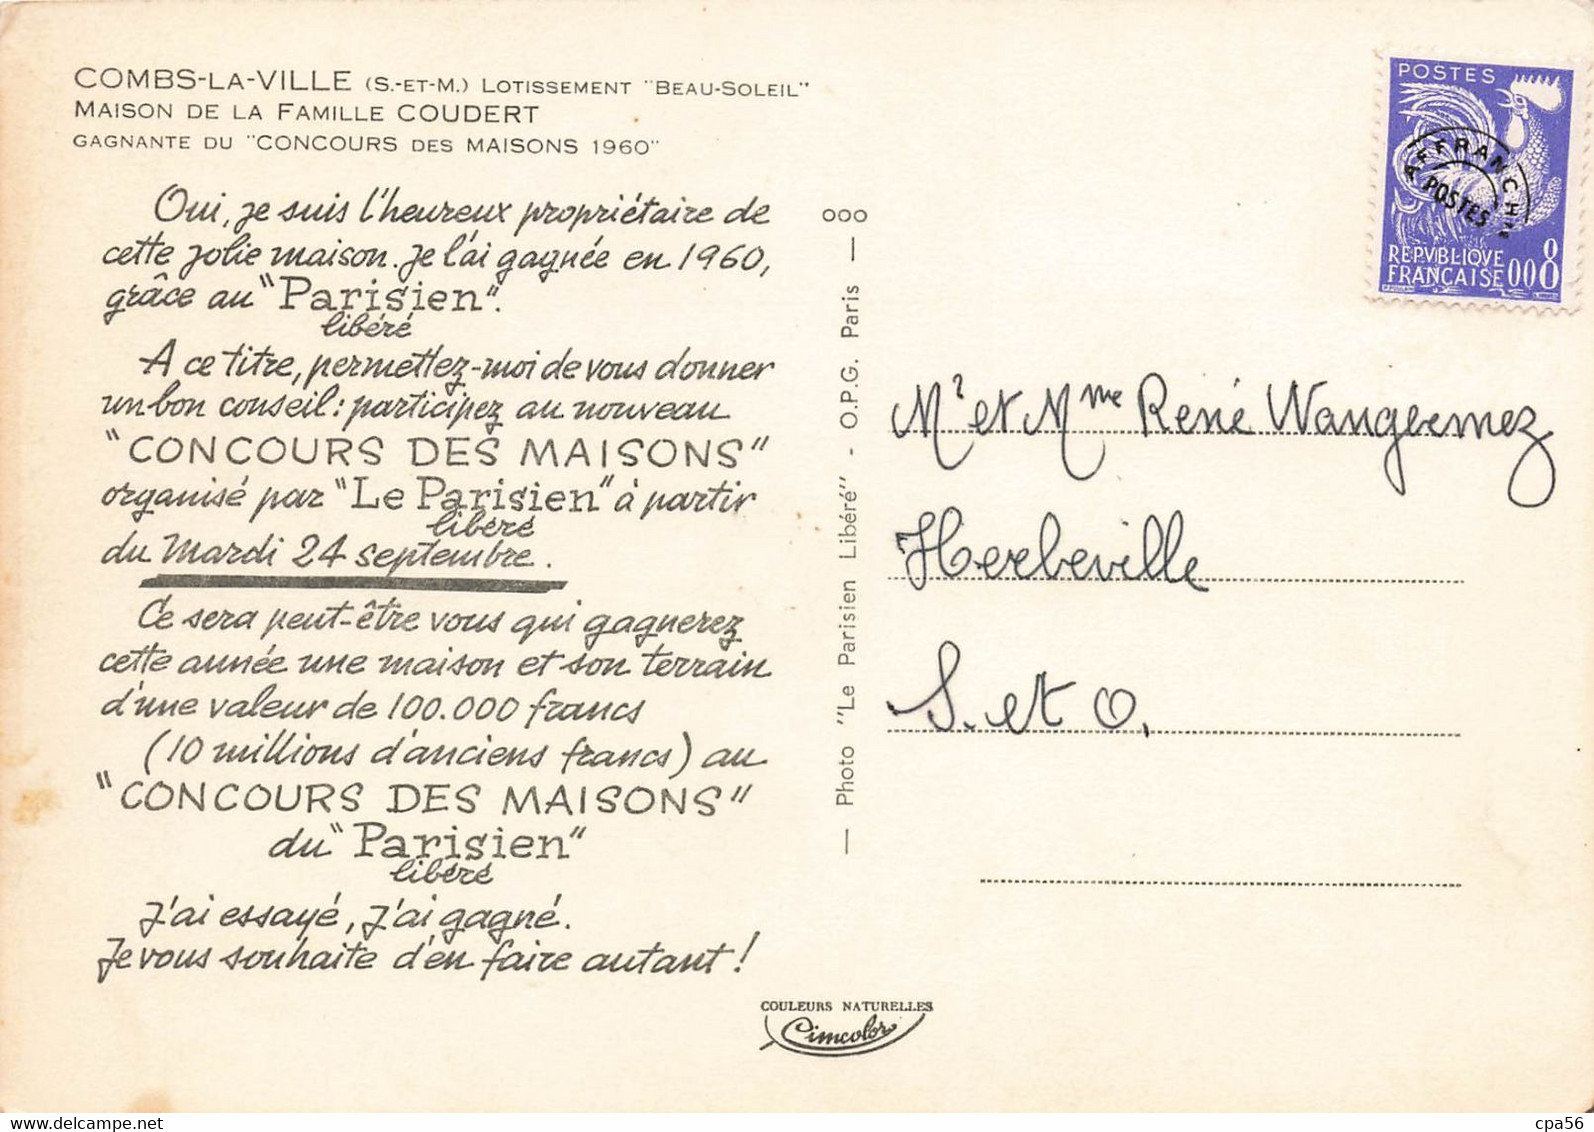 COMBS-LA-VILLE (S.-ET-M.) LOTISSEMENT "BEAU-SOLEIL"
MAISON DE LA FAMILLE COUDERT
GAGNANTE DU "CONCOURS DES MAISONS 1960"
Oui, je suis l'heureux propriétaire de
cette jolie maison. Je l'ai gagnée en 1960,
grâce au "Parisien".
libéré
A ce titre, permettez-moi de vous donner
un bon conseil : participez au nouveau
"CONCOURS DES MAISONS"
organisé par "Le Parisien" à partir
libéré
du Mardi 24 septembre.
Ce sera peut-être vous qui gagnerez
cette année une maison et son terrain
d'une valeur de 100.000 francs
(10 millions d'anciens francs) au
"CONCOURS DES MAISONS"
du "Parisien"
libéré
J'ai essayé, j'ai gagné.
Je vous souhaite d'en faire autant !
COULEURS NATURELLES
Cimcolor
— Photo "Le Parisien Libéré" - O.P.G. Paris — 000
POSTES
AFFRANCHts
POSTES
REPVBLIQVE
FRANCAISE 008
Mr et Mme René Wangermez
Herbeville
S. et O.
www.delcampe.net
cpa56